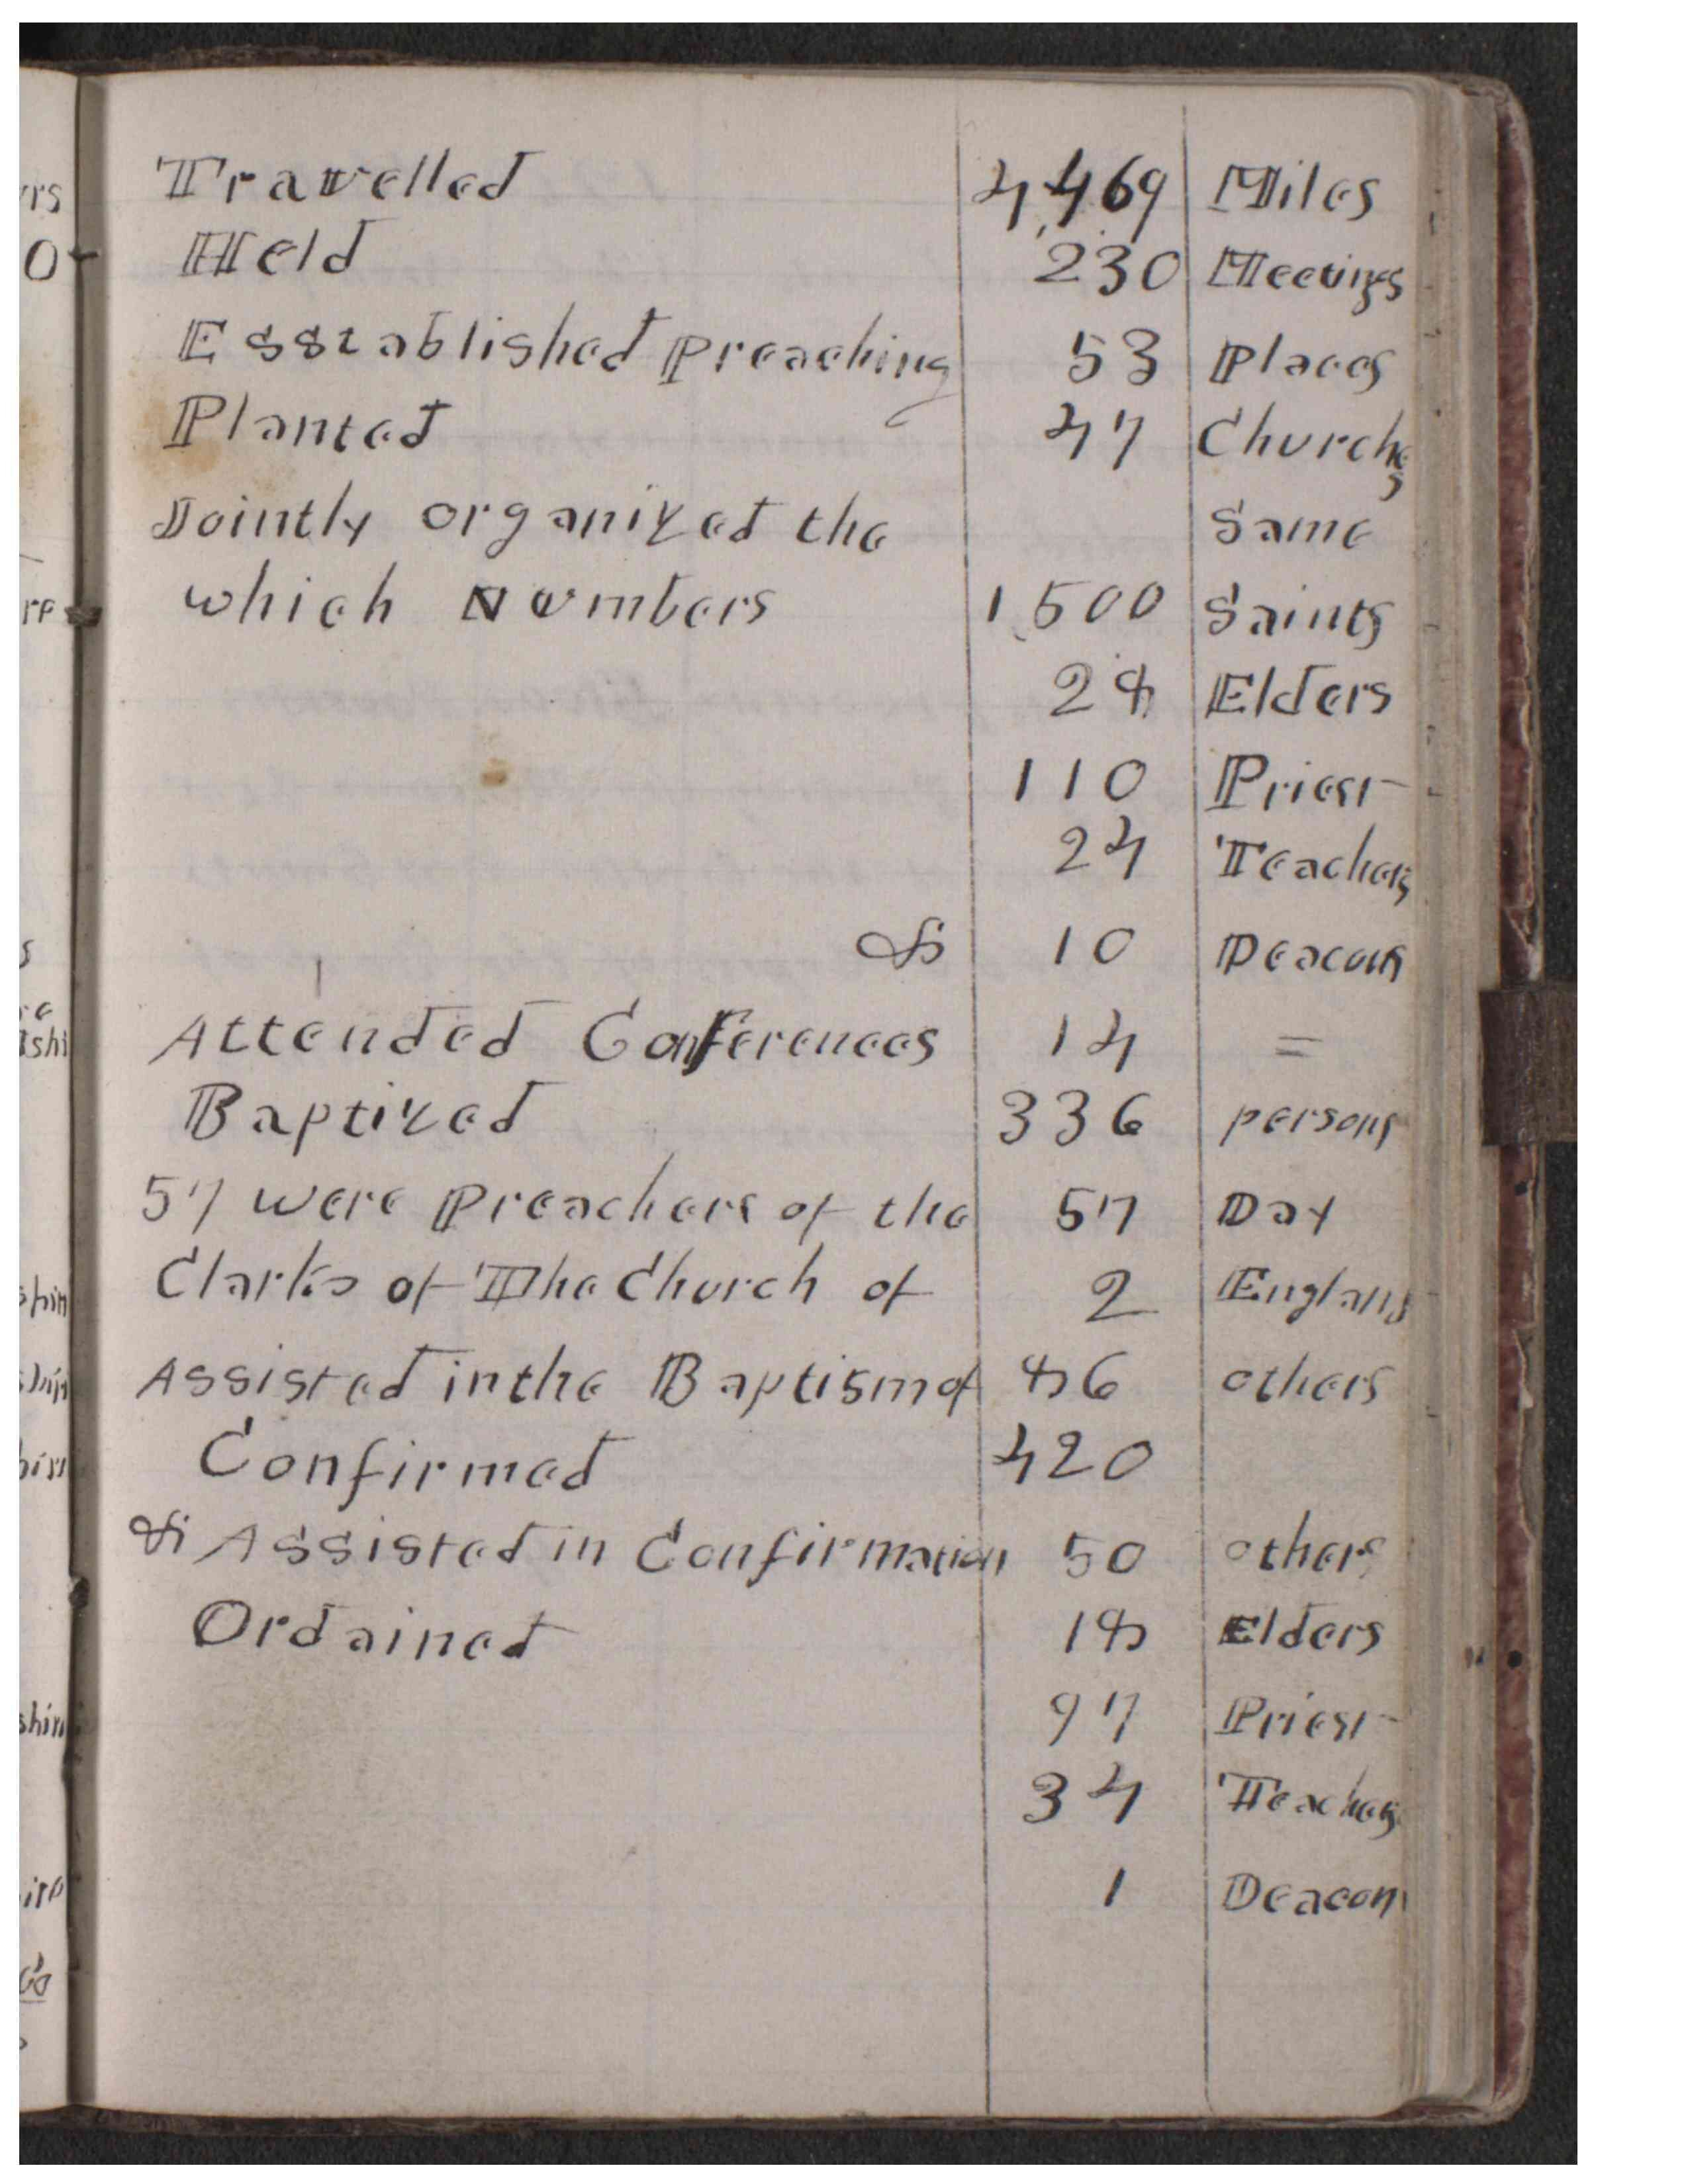 Travelled 4,469 Miles
Held 230 Meetings
Esstablished Preaching 53 Places
Planted 47 Churches
Jointly organized the Same
which Numbers 1,500 Saints
28 Elders
110 Priest
24 Teachers
& 10 Deacons
Attended Conferences 14 =
Baptized 336 persons
57 were Preachers of the 57 Day
Clarks of The Church of 2 England
Assisted in the Baptism of 86 others
Confirmed 420
& Assisted in Confirmation 50 others
Ordained 18 Elders
97 Priest
34 Teachers
1 Deacon